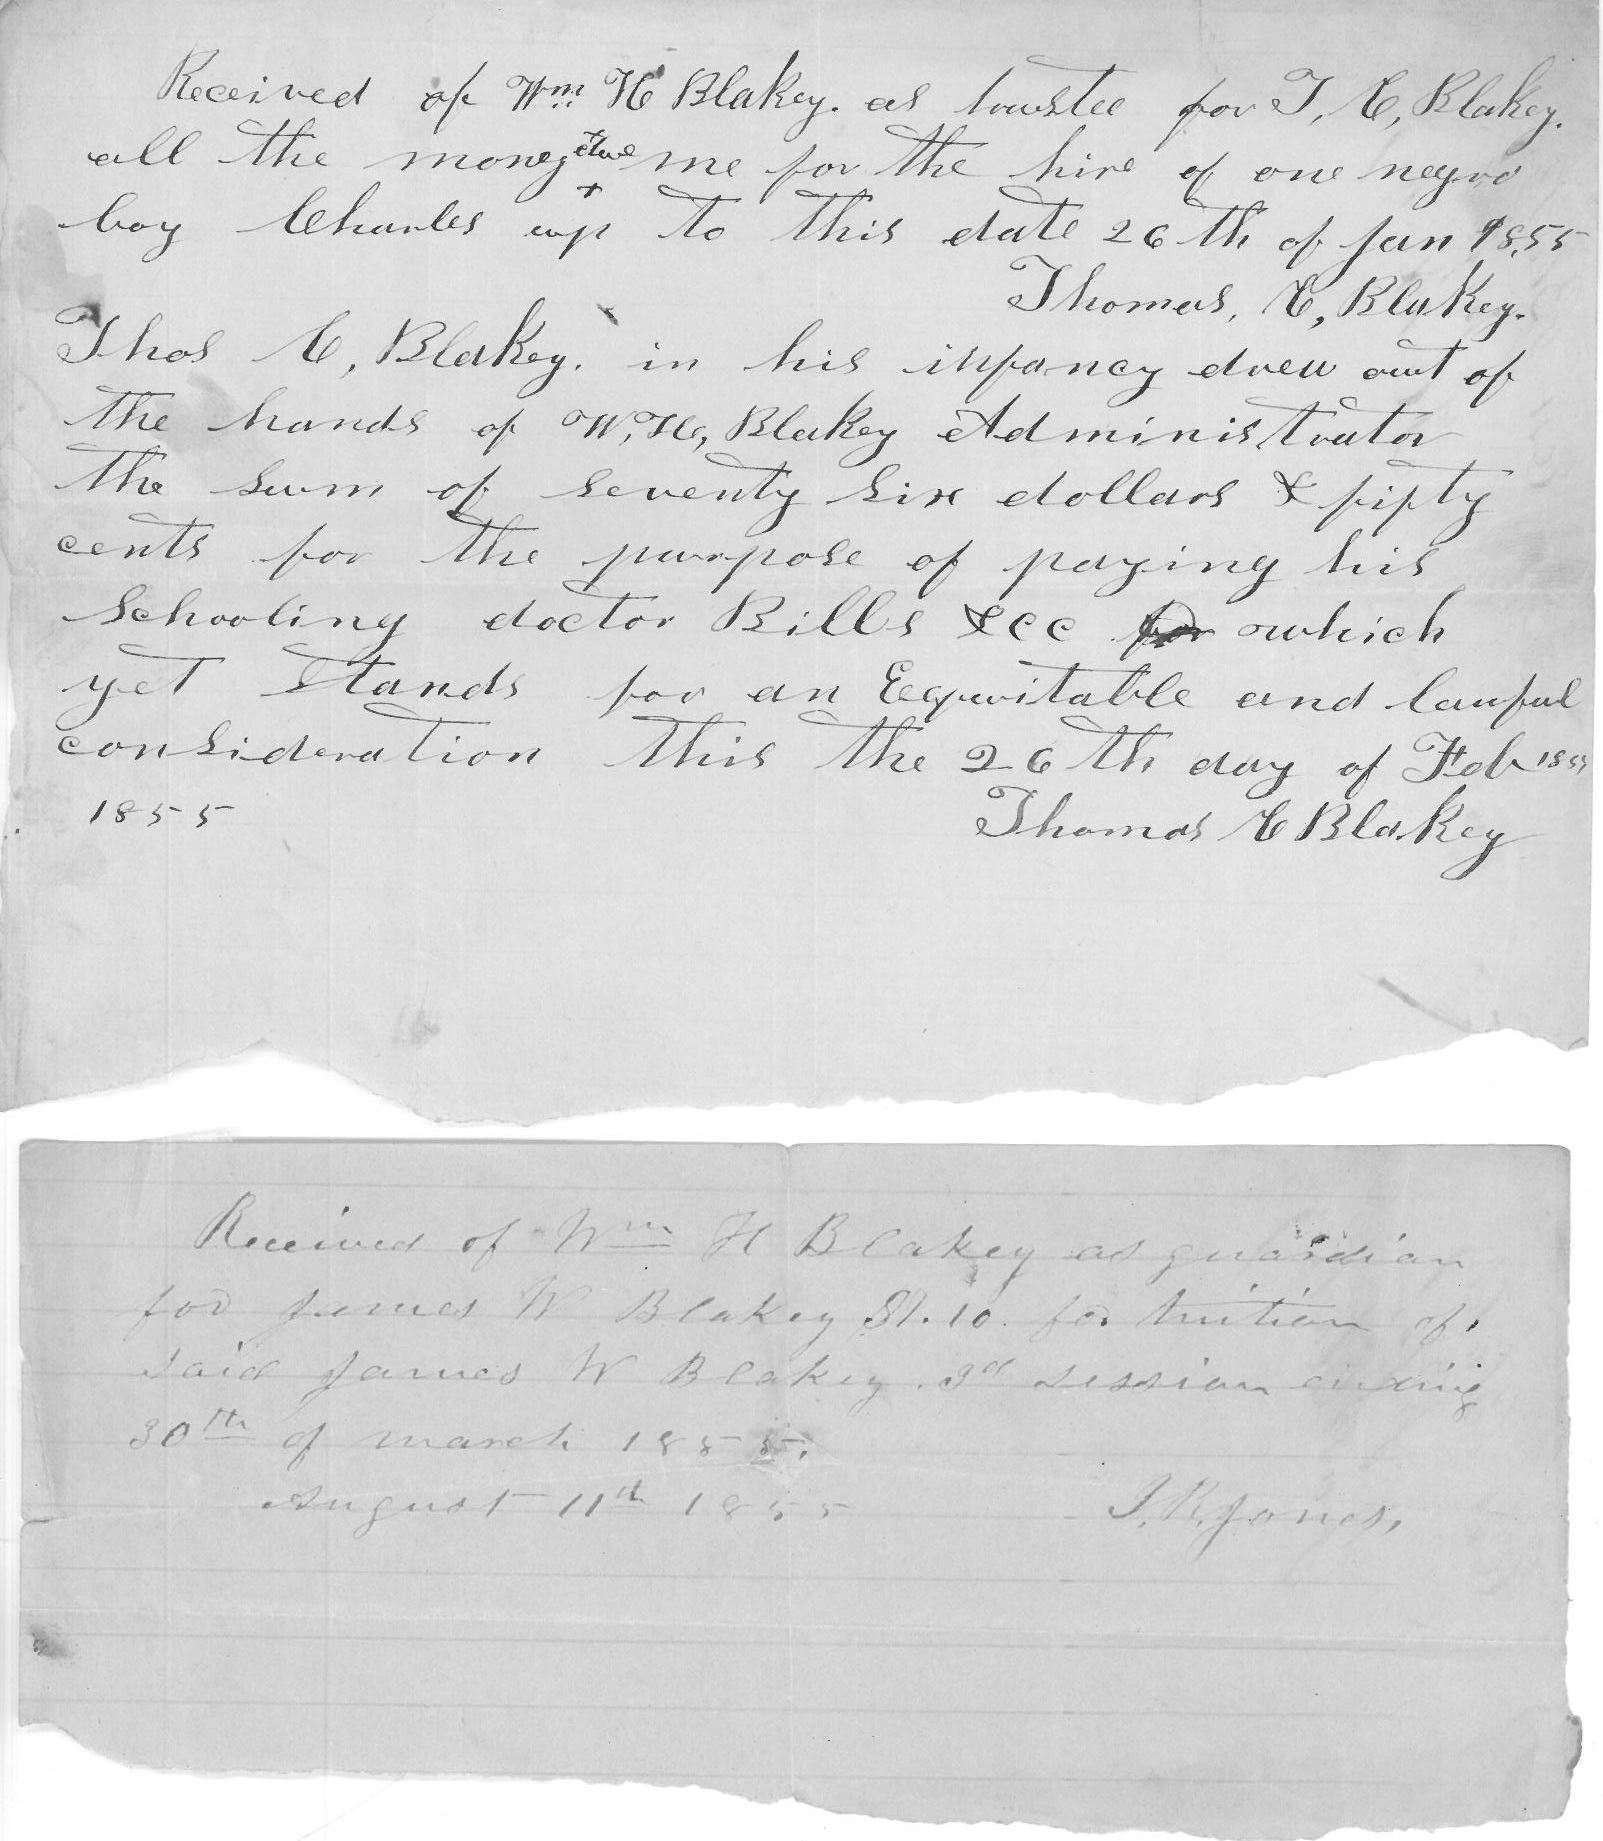 Received of Wm H Blakey. as trustee for T, C, Blakey.
all the money due me for the hire of one negro
boy Charles up to this date 26th of Jan 1855
Thomas, C, Blakey.
Thos C, Blakey. in his infancy drew out of
the hands of W, H, Blakey Administrator
the sum of seventy six dollars & fifty
cents for the purpose of paying his
schooling doctor Bills &cc for which
yet stands for an Eequitable and lawful
consideration this the 26th day of Feb 1855
1855
Thomas C Blakey
Received of Wm H Blakey as guardian
for James W Blakey for tuition of
said James W Blakey. 3d session ending
30th of march 1855.
August 11th 1855 J. R. Jones,